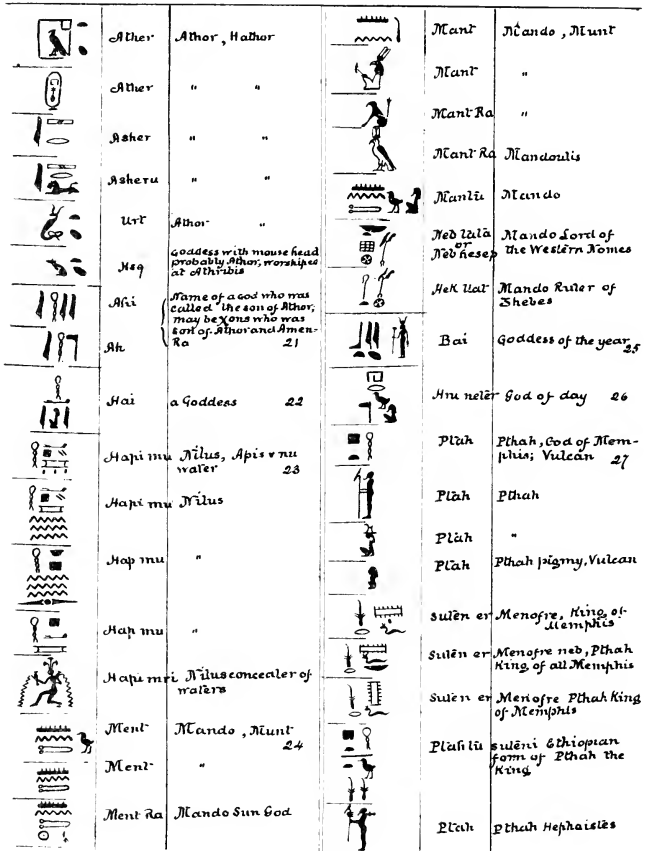 Ather Athor, Hathor
Ather " "
Asher " "
Asheru " "
Urt Athor "
Heq Goddess with mouse head
probably Athor, worshiped
at Athribis
Ahi Name of a god who was
called the son of Athor,
may be Xons who was
son of Athor and Amen-
Ah Ra 21
Hai a Goddess 22
Hapi mu Nilus, Apis v nu
water 23
Hapi mu Nilus
Hap mu "
Hap mu "
Hapi mri Nilus concealer of
waters
Ment Mando, Munt
24
Ment "
Ment Ra Mando Sun God
Mant Mando, Munt
Mant "
Mant Ra "
Mant Ra Mandoulis
Mantu Mando
Neb Uala Mando Lord of
or the Western Nomes
Neb hesep
Hek Uat Mando Ruler of
Thebes
Bai Goddess of the year
25
Hru neter God of day 26
Ptah Pthah, God of Mem-
phis; Vulcan 27
Ptah Pthah
Ptah "
Ptah Pthah pigmy, Vulcan
Suten er Menofre, King of
Memphis
Suten er Menofre neb, Pthah
King of all Memphis
Suten er Menofre Pthah King
of Memphis
Ptah tu suteni Ethiopian
form of Pthah the
King
Ptah Pthah Hephaistes